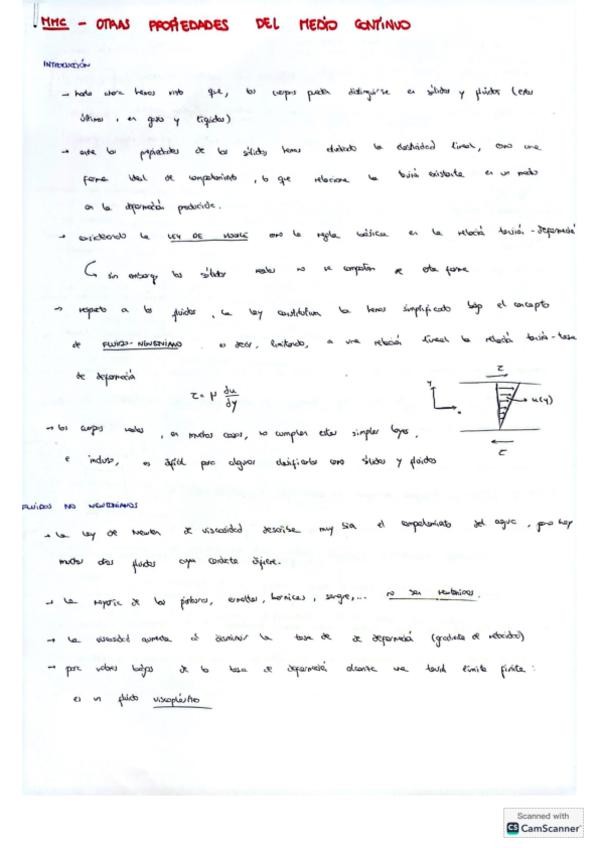 MMC - OTRAS PROPIEDADES DEL MEDIO CONTINUO
INTRODUCCIÓN
→ hasta ahora hemos visto que, los cuerpos pueden distinguirse en sólidos y fluidos (estos
últimos, en gases y líquidos)
→ entre las propiedades de los sólidos hemos estudiado la elasticidad lineal, como una
forma ideal de comportamiento, lo que relaciona la tensión existente en un medio
con la deformación producida.
→ considerando la LEY DE HOOKE como la regla básica en la relación tensión-deformación
sin embargo los sólidos reales no se comportan de esta forma
→ respecto a los fluidos, la ley constitutiva la hemos simplificado bajo el concepto
de FLUIDO-NEWTONIANO es decir, limitando, a una relación lineal la relación tensión-tasa
de deformación
τ = μ du/dy
τ
y
u(y)
τ
→ los cuerpos reales, en muchos casos, no cumplen estas simples leyes,
e incluso, es difícil para algunos clasificarlos como sólidos y fluidos
FLUIDOS NO NEWTONIANOS
→ La Ley de Newton de viscosidad describe muy bien el comportamiento del agua, pero hay
muchos otros fluidos cuya conducta difiere.
→ La mayoría de las pinturas, esmaltes, barnices, sangre,... no son newtonianos.
→ La viscosidad aumenta al disminuir la tasa de de deformación (gradiente de velocidades)
→ para valores bajos de la tasa de deformación alcanza una tensión límite finita:
es un fluido viscoplástico
Scanned with
CS CamScanner